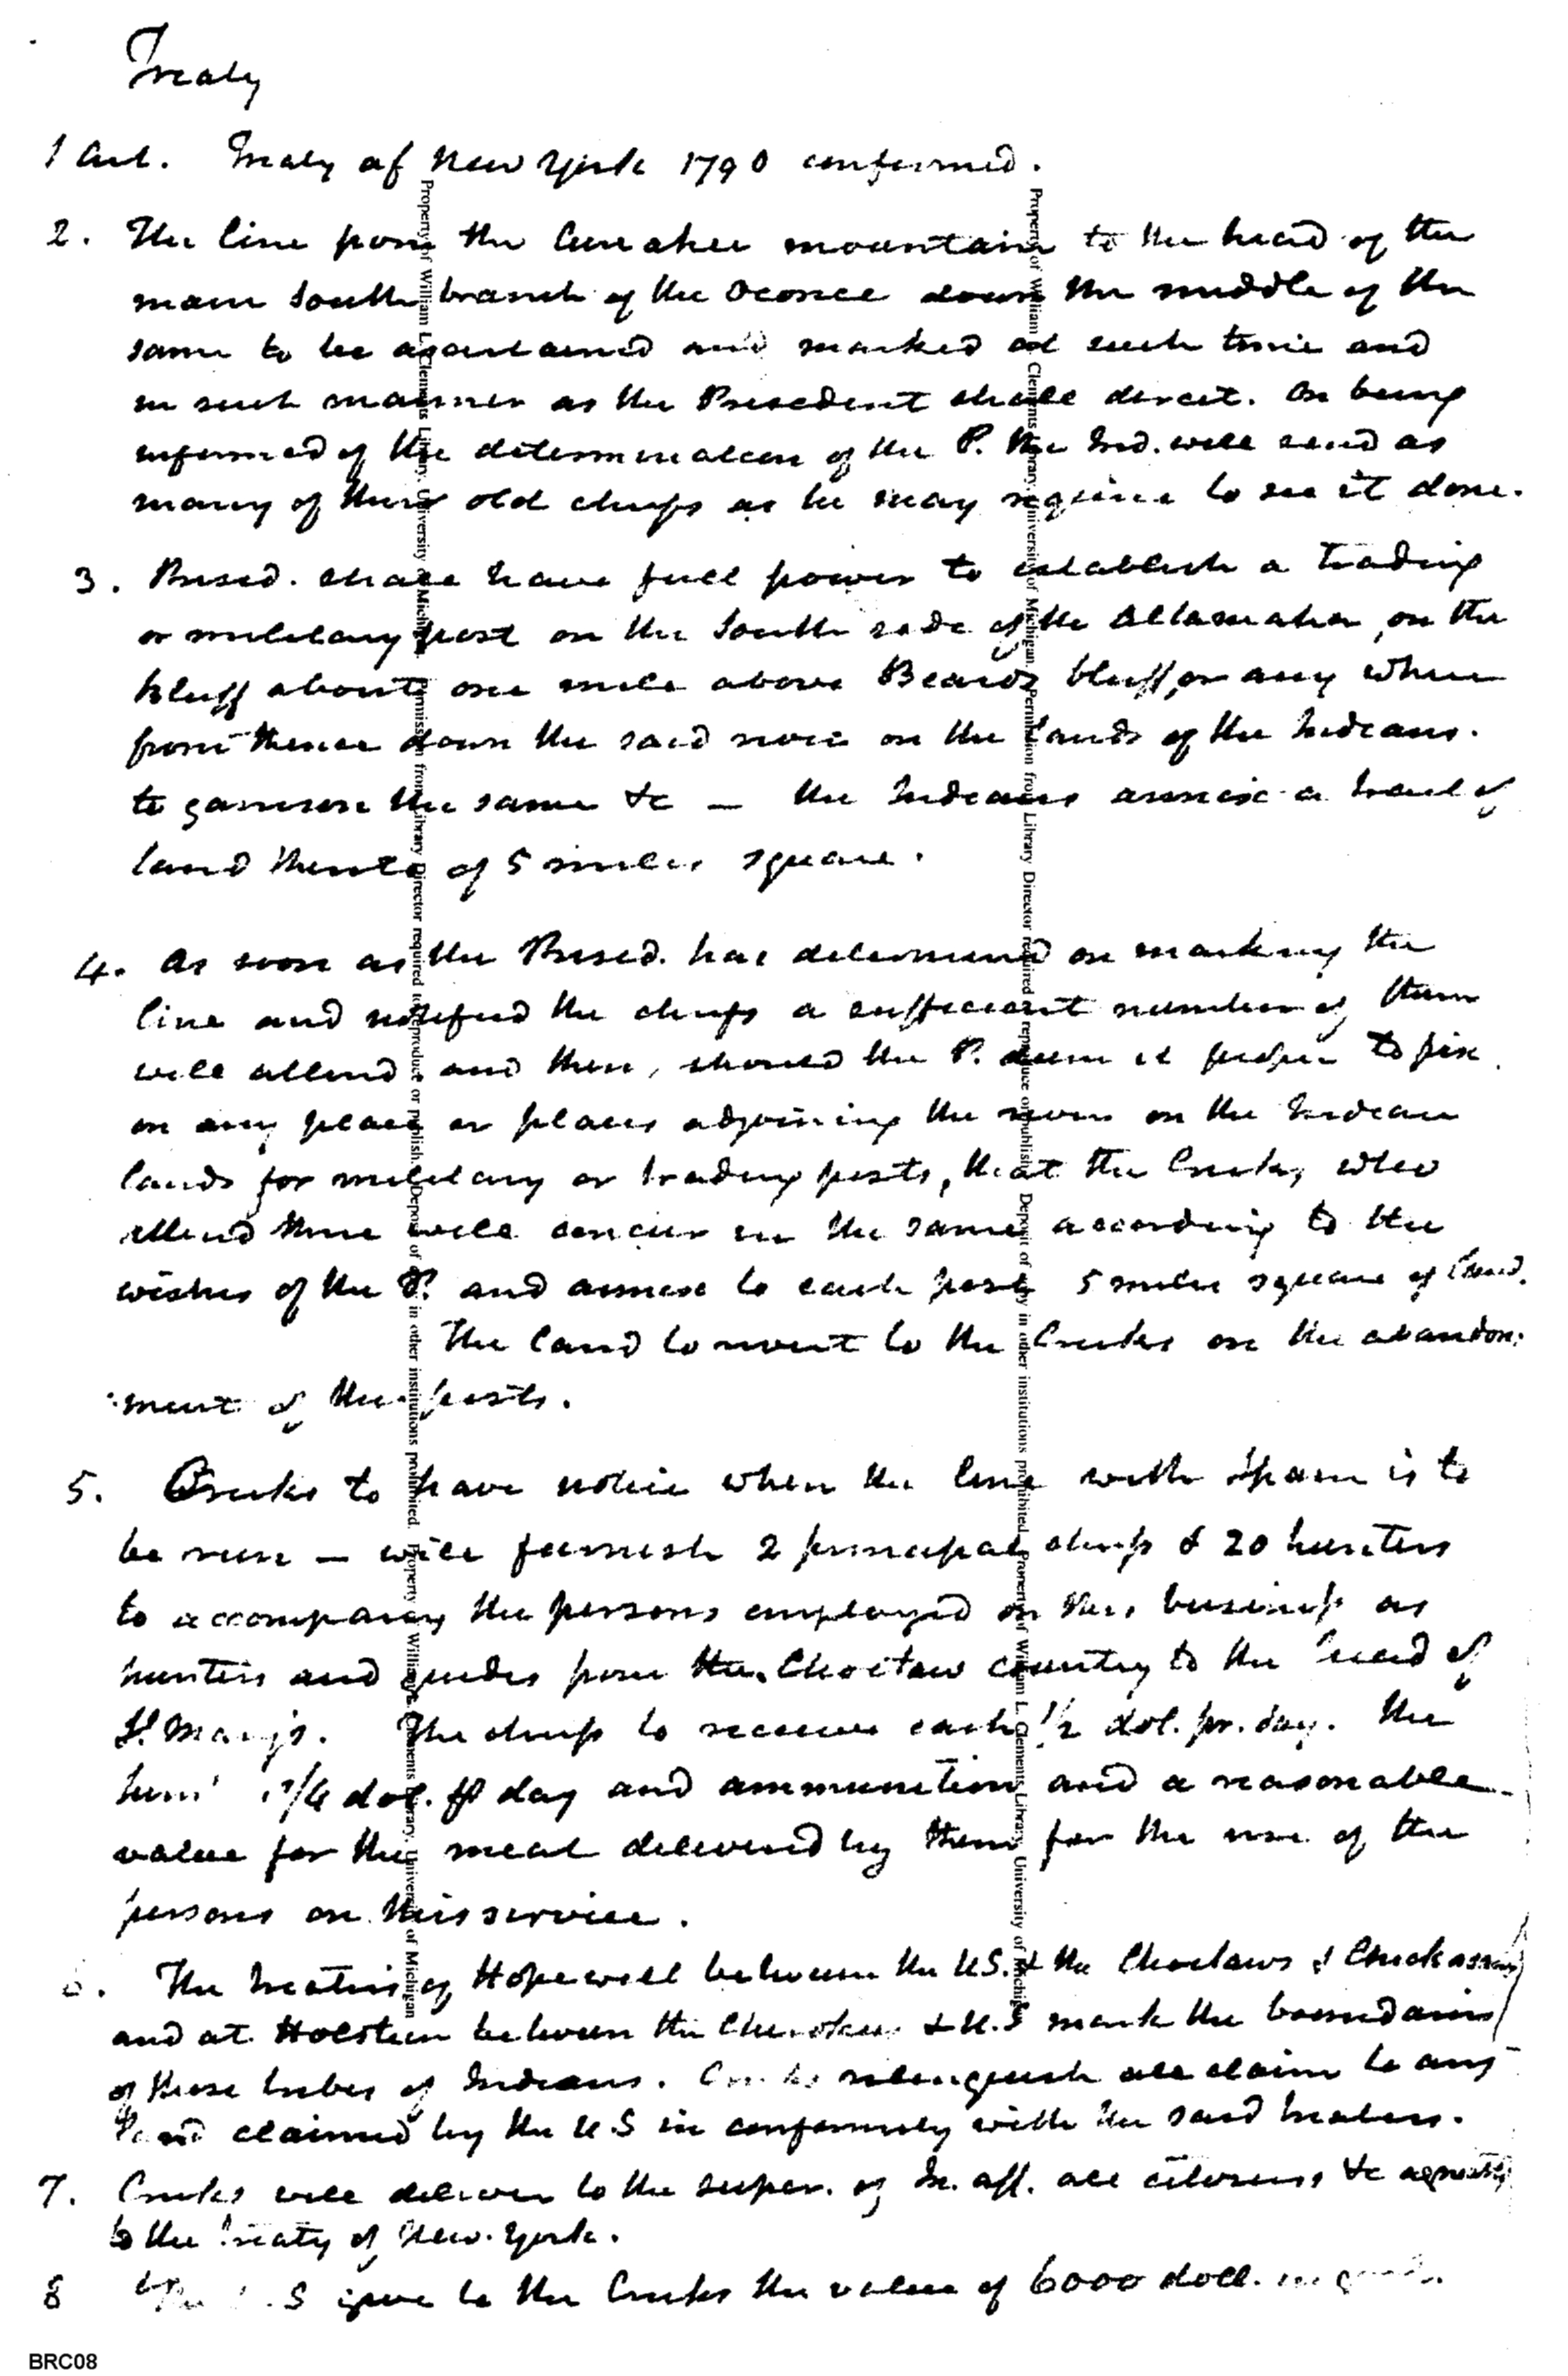 Treaty
1 Art. Treaty of New York 1790 confirmed.
2. The line from the Currahee mountain to the head of the
main South branch of the Oconee down the middle of the
same to be ascertained and marked at such time and
in such manner as the President shall direct. On being
informed of the determination of the P. the Ind. will send as
many of their old chiefs as he may require to see it done.
3. Presid. shall have full power to establish a trading
or military post on the South side of the Altamaha, on the
bluff about one mile above Beards bluff, or any where
from thence down the said river on the lands of the Indians.
to garrison the same &c — the Indians annex a tract of
land thereto of 5 miles square.
4. As soon as the Presid. has determined on marking the
line and notified the chiefs a sufficient number of them
will attend and then, should the P. deem it proper to fix
on any place or places adjoining the river on the Indian
lands for military or trading posts, that the Creeks, who
attend there will concur in the same according to the
wishes of the P. and annex to each post 5 miles square of land.
The land to revert to the Creeks on the abandon:
:ment of the posts.
5. Creeks to have notice when the line with Spain is to
be run — will furnish 2 principal chiefs & 20 hunters
to accompany the persons employed on this business as
hunters and guides from the Choctaw country to the head of
St. Marys. The chiefs to receive each 1/2 dol. pr. day. the
hunt 1/4 dol. ⅌ day and ammunition and a reasonable
value for the meat delivered by them for the use of the
persons on this service.
6. The treaties of Hopewell between the U.S. & the Choctaws & Chickasaws
and at Holstein between the Cherokees & U.S mark the boundaries
of those tribes of Indians. Creeks relinquish all claim to any
land claimed by the U.S in conformity with the said treaties.
7. Creeks will deliver to the super. of In. aff. all citizens &c agreeably
to the treaty of New. York.
8 S give to the Creeks the value of 6000 doll. in goods.
Property of William L. Clements Library, University of Michigan. Permission from Library Director required to reproduce or publish. Deposit of copy in other institutions prohibited. Property of William L. Clements Library, University of Michigan
Property of William L. Clements Library, University of Michigan. Permission from Library Director required to reproduce or publish. Deposit of copy in other institutions prohibited. Property of William L. Clements Library, University of Michigan
BRC08